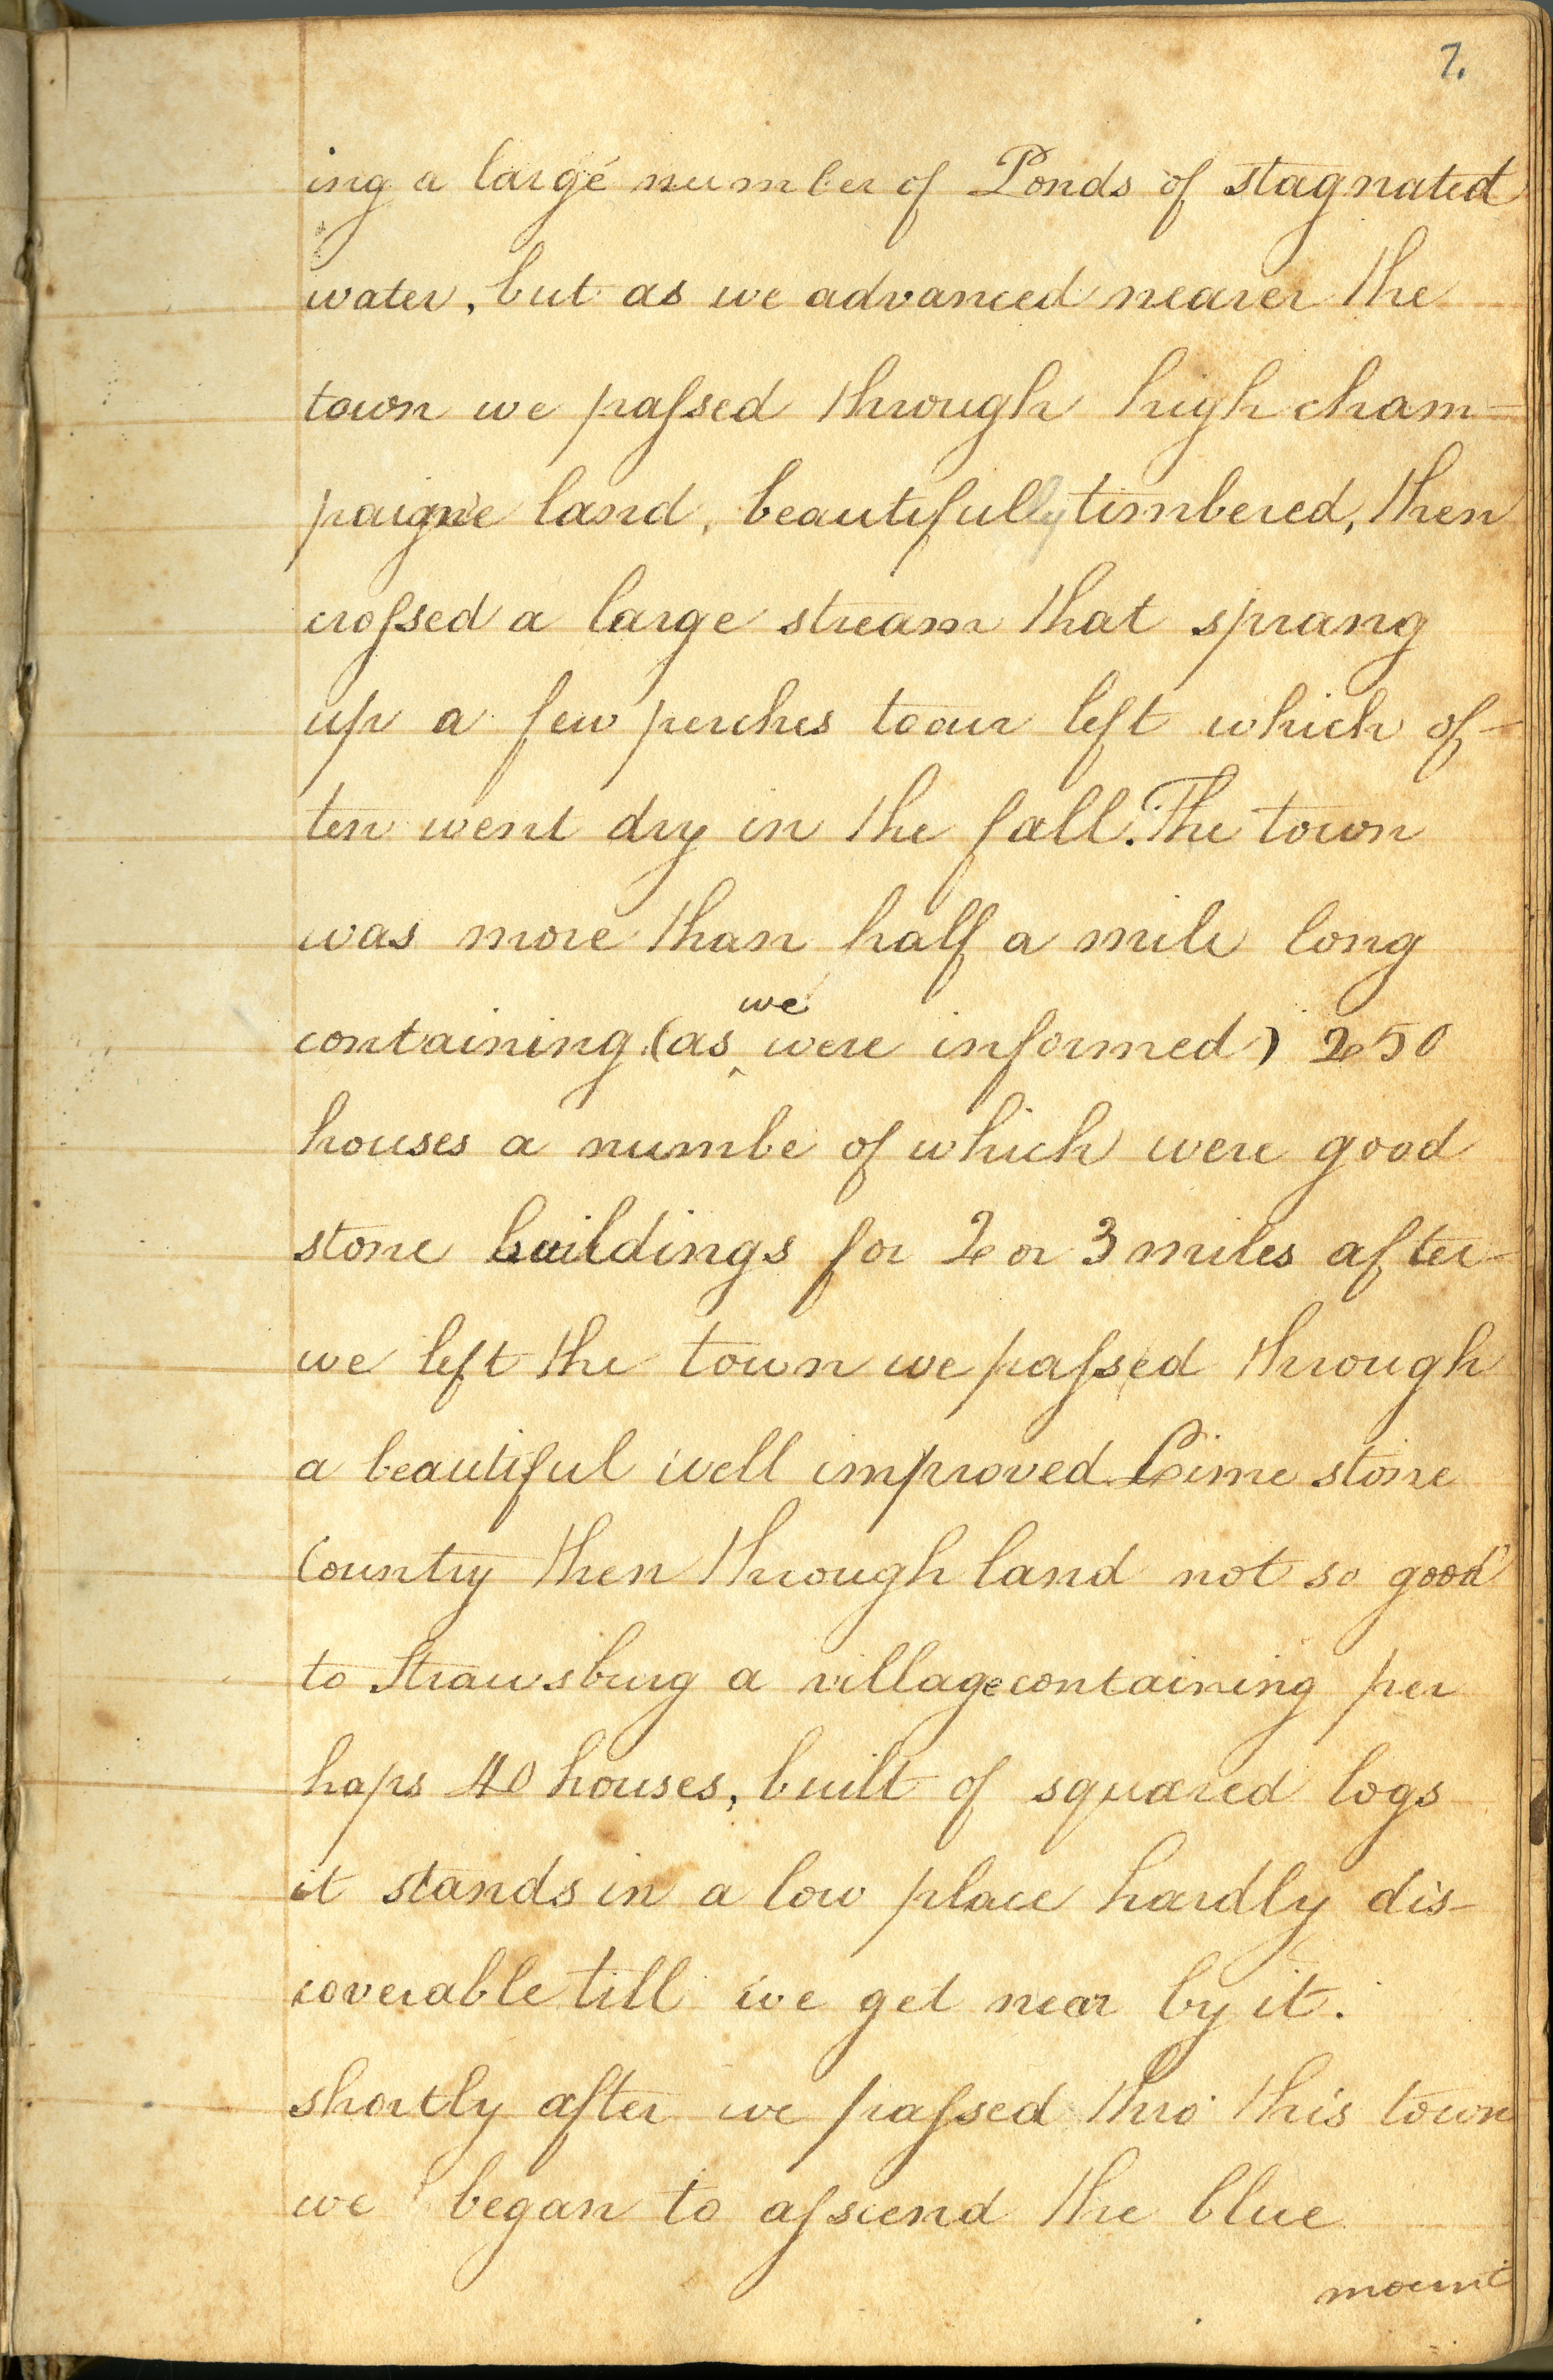 7.
ing a large number of Ponds of stagnated
water, but as we advanced nearer the
town we passed through high cham=
paigne land, beautifully timbered, then
crossed a large stream that sprang
up a few perches to our left which of-
ten went dry in the fall. The town
was more than half a mile long
we
containing (as ‸ were informed) 250
houses a numbe of which were good
stone buildings for 2 or 3 miles after
we left the town we passed through
a beautiful well improved Lime stone
Country then through land not so good
to Strawsburg a village containing per
haps 40 houses, built of squared logs
it stands in a low place hardly dis-
coverable till we get near by it.
shortly after we passed thro this town
we began to asscend the blue
mount